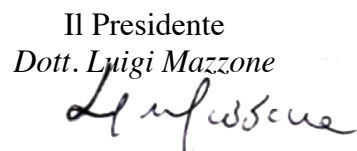 Il Presidente
Dott. Luigi Mazzone